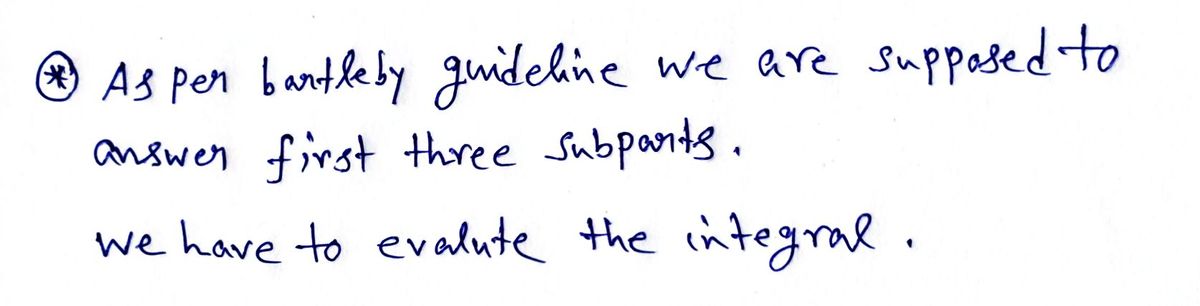 (*) As per bartleby guideline we are supposed to
answer first three subparts.
we have to evalute the integral.